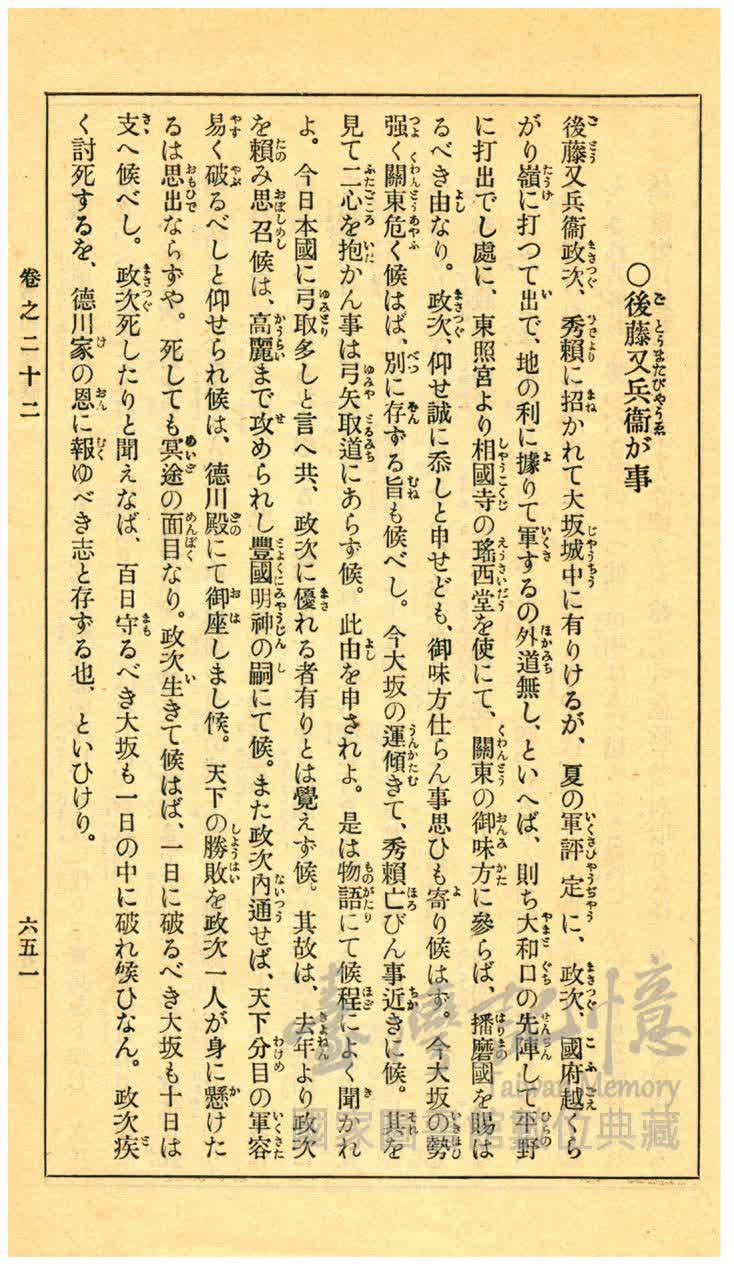 〇後藤又兵衞が事
後藤又兵衞政次、秀頼に招かれて大坂城中に有りけるが、夏の軍評定に、政次、國府越くら
がり嶺に打つて出で、地の利に據りて軍するの外道無し、といへば、則ち大和口の先陣して平野
に打出でし處に、東照宮より相國寺の瑤西堂を使にて、關東の御味方に參らば、播磨國を賜は
るべき由なり。政次、仰せ誠に忝しと申せども、御味方仕らん事思ひも寄り候はず。今大坂の勢
强く關東危く候はば、別に存ずる旨も候べし。今大坂の運傾きて、秀頼亡びん事近きに候。其を
見て二心を抱かん事は弓矢取道にあらず候。此由を申されよ。是は物語にて候程によく聞かれ
よ。今日本國に弓取多しと言へ共、政次に優れる者有りとは覺えず候。其故は、去年より政次
を頼み思召候は、高麗まで攻められし豐國明神の嗣にて候。また政次內通せば、天下分目の軍容
易く破るべしと仰せられ候は、德川殿にて御座しまし候。天下の勝敗を政次一人が身に懸けた
るは思出ならずや。死しても冥途の面目なり。政次生きて候はば、一日に破るべき大坂も十日は
支へ候べし。政次死したりと聞えなば、百日守るべき大坂も一日の中に破れ候ひなん。政次疾
く討死するを、德川家の恩に報ゆべき志と存ずる也、といひけり。
卷之二十二
六五一
臺灣記憶
Taiwan Memory
國家圖書館數位典藏